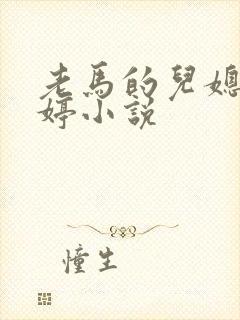 老馬的兒媳
婷小說
憧生